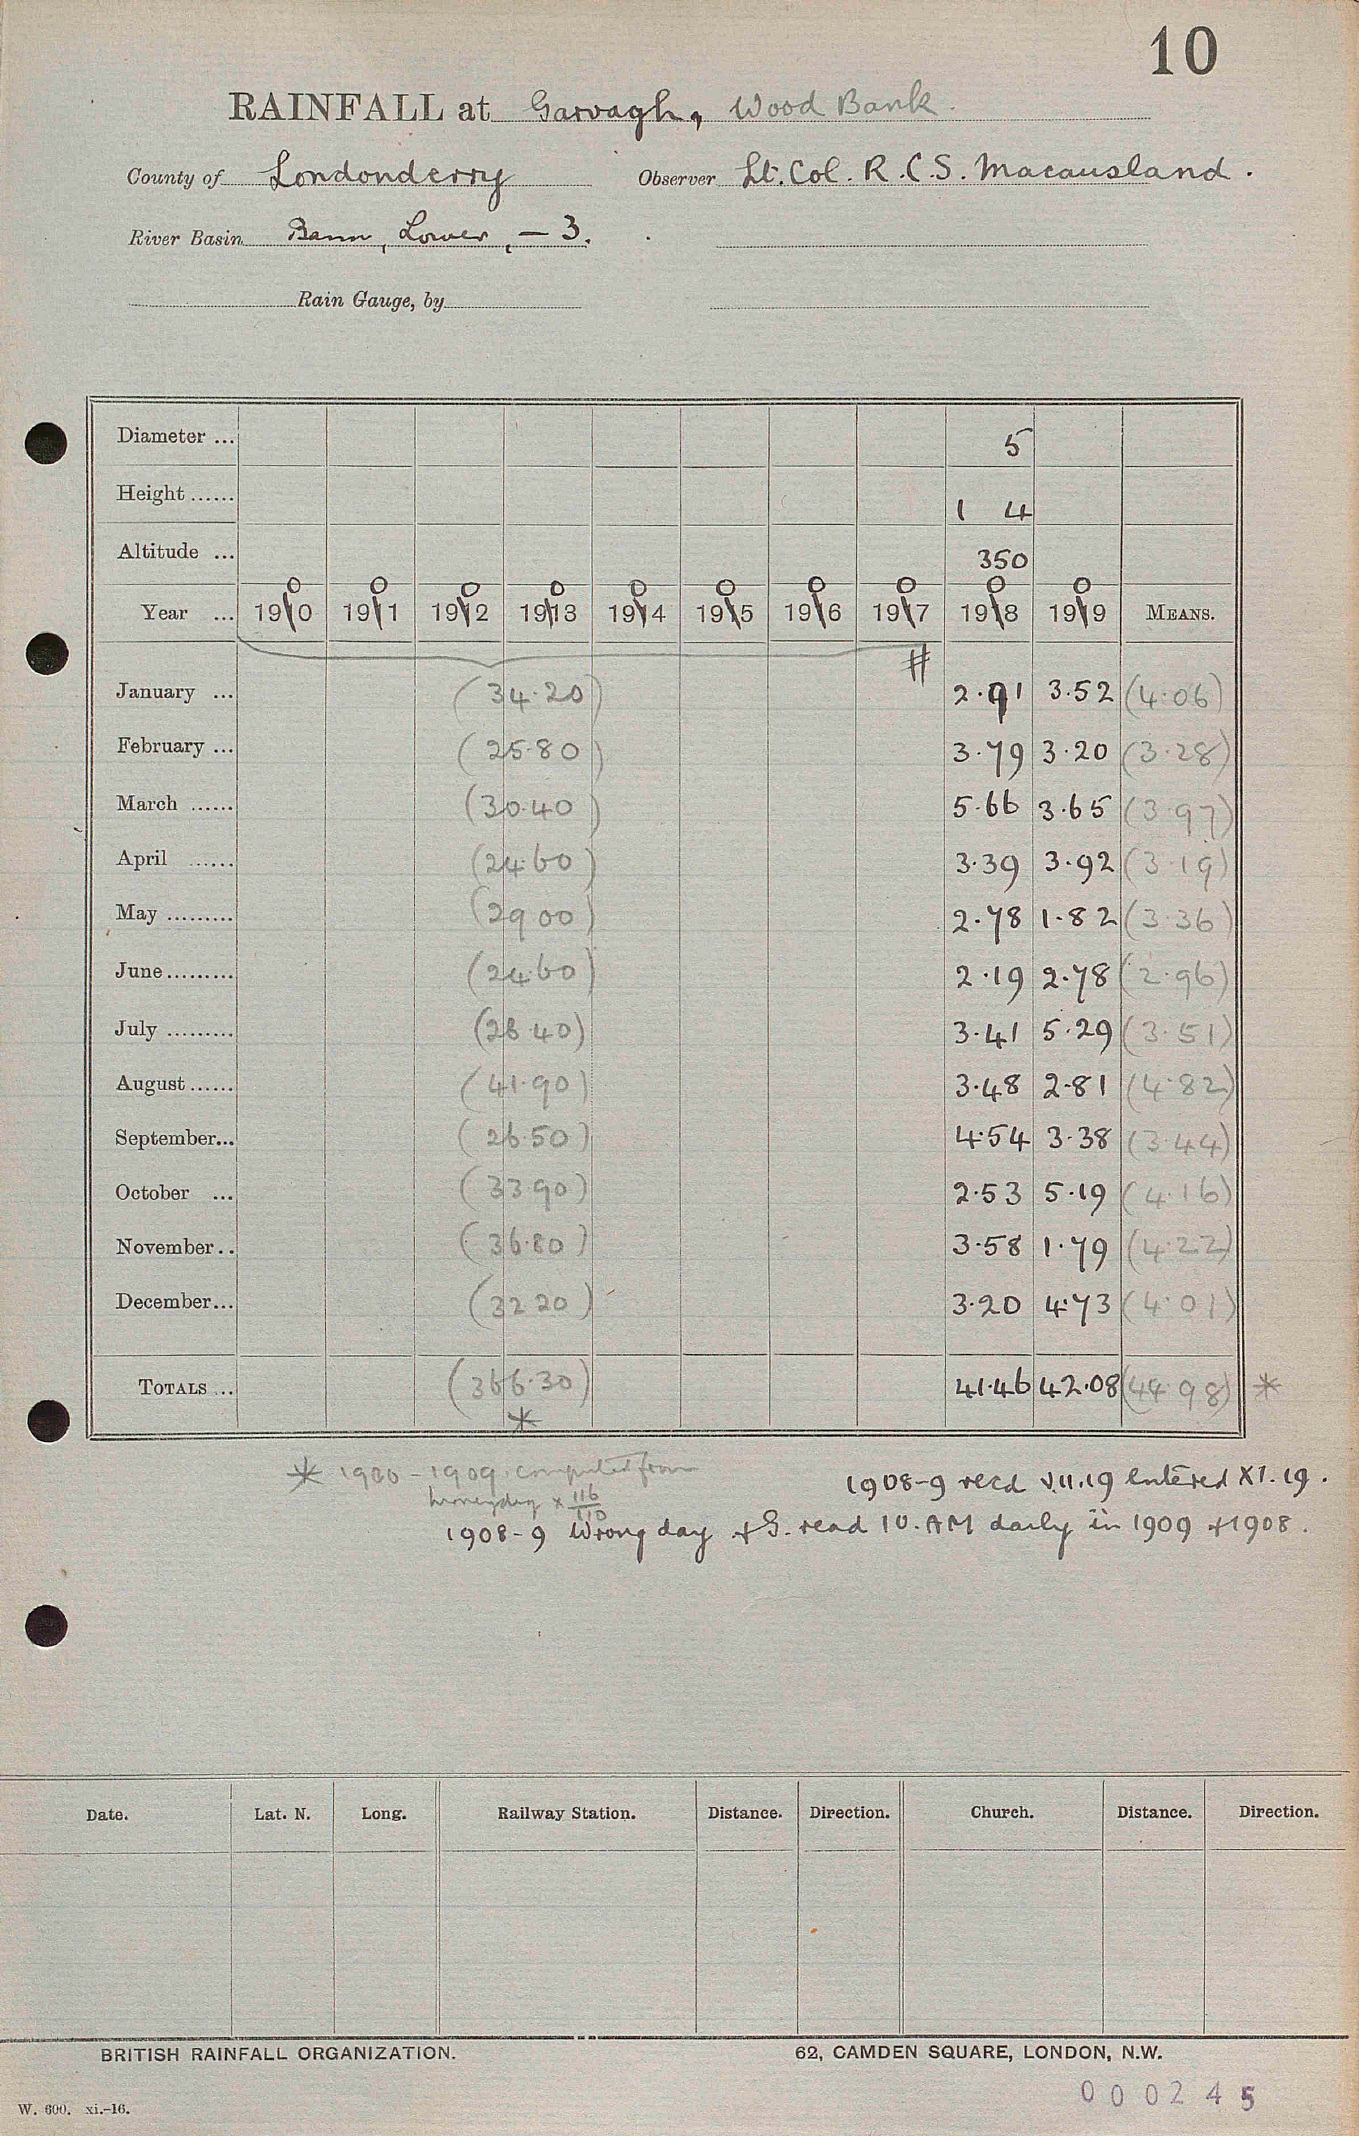 10
RAINFALL at Garvagh, Wood Bank.
County of Londonderry Observer Lt. Col. R.C.S. Macausland.
River Basin Bann, Lower, - 3.
Rain Gauge, by
Diameter ... 5
Height ...... 1 4
Altitude ... 350
Year ... 1900 1901 1902 1903 1904 1905 1906 1907 1908 1909 MEANS.
#
January ... (34.20) 2.91 3.52 (4.06)
February ... (25.80) 3.79 3.20 (3.28)
March ...... (30.40) 5.66 3.65 (3.97)
April ...... (24.60) 3.39 3.92 (3.19)
May ......... (29.00) 2.78 1.82 (3.36)
June ......... (24.60) 2.19 2.78 (2.96)
July ......... (28.40) 3.41 5.29 (3.51)
August ...... (41.90) 3.48 2.81 (4.82)
September... (26.50) 4.54 3.38 (3.44)
October ... (33.90) 2.53 5.19 (4.16)
November.. (36.80) 3.58 1.79 (4.22)
December... (32.20) 3.20 4.73 (4.01)
TOTALS ... (366.30) 41.46 42.08 (44.98) *
*
* 1900-1909 computed from
x 116/110
1908-9 recd V.11.19 entered XI.19.
1908-9 Wrong day & G. read 10.AM daily in 1909 & 1908.
Date. Lat. N. Long. Railway Station. Distance. Direction. Church. Distance. Direction.
BRITISH RAINFALL ORGANIZATION. 62, CAMDEN SQUARE, LONDON, N.W.
000245
W. 600. xi.-16.